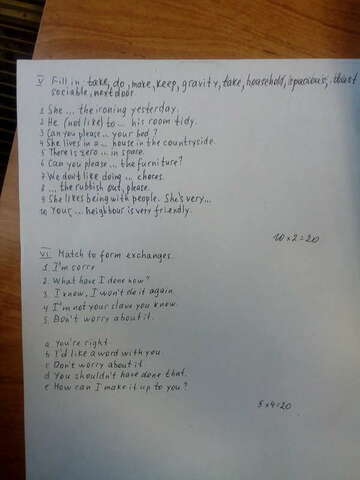 V Fill in take, do, make, keep, gravity, take, household, spacious, dust
sociable, next door
1 She ... the ironing yesterday.
2 He (not like) to ... his room tidy.
3 Can you please ... your bed?
4 She lives in a ... house in the countryside.
5 There is zero ... in space.
6 Can you please ... the furniture?
7 We don't like doing ... chores.
8 ... the rubbish out, please.
9 She likes being with people. She's very...
10 Your ... neighbour is very friendly.
10 x 2 = 20
VI Match to form exchanges.
1. I'm sorry
2. What have I done now?
3. I know, I won't do it again
4 I'm not your slave you know.
5. Don't worry about it.
a You're right
b I'd like a word with you.
c Don't worry about it
d You shouldn't have done that.
e How can I make it up to you?
5 x 4 = 20